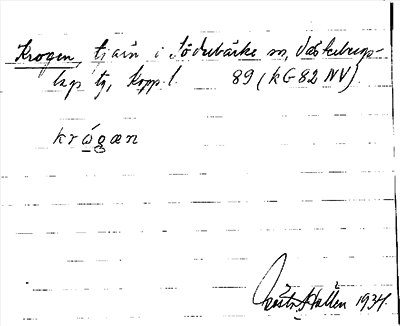 Krogen, tjärn i Söderbärke sn, Västerbergs-
lags tg, Kopp. l. 89 (kG 82 NV)
krógæn
Hallén 1934.